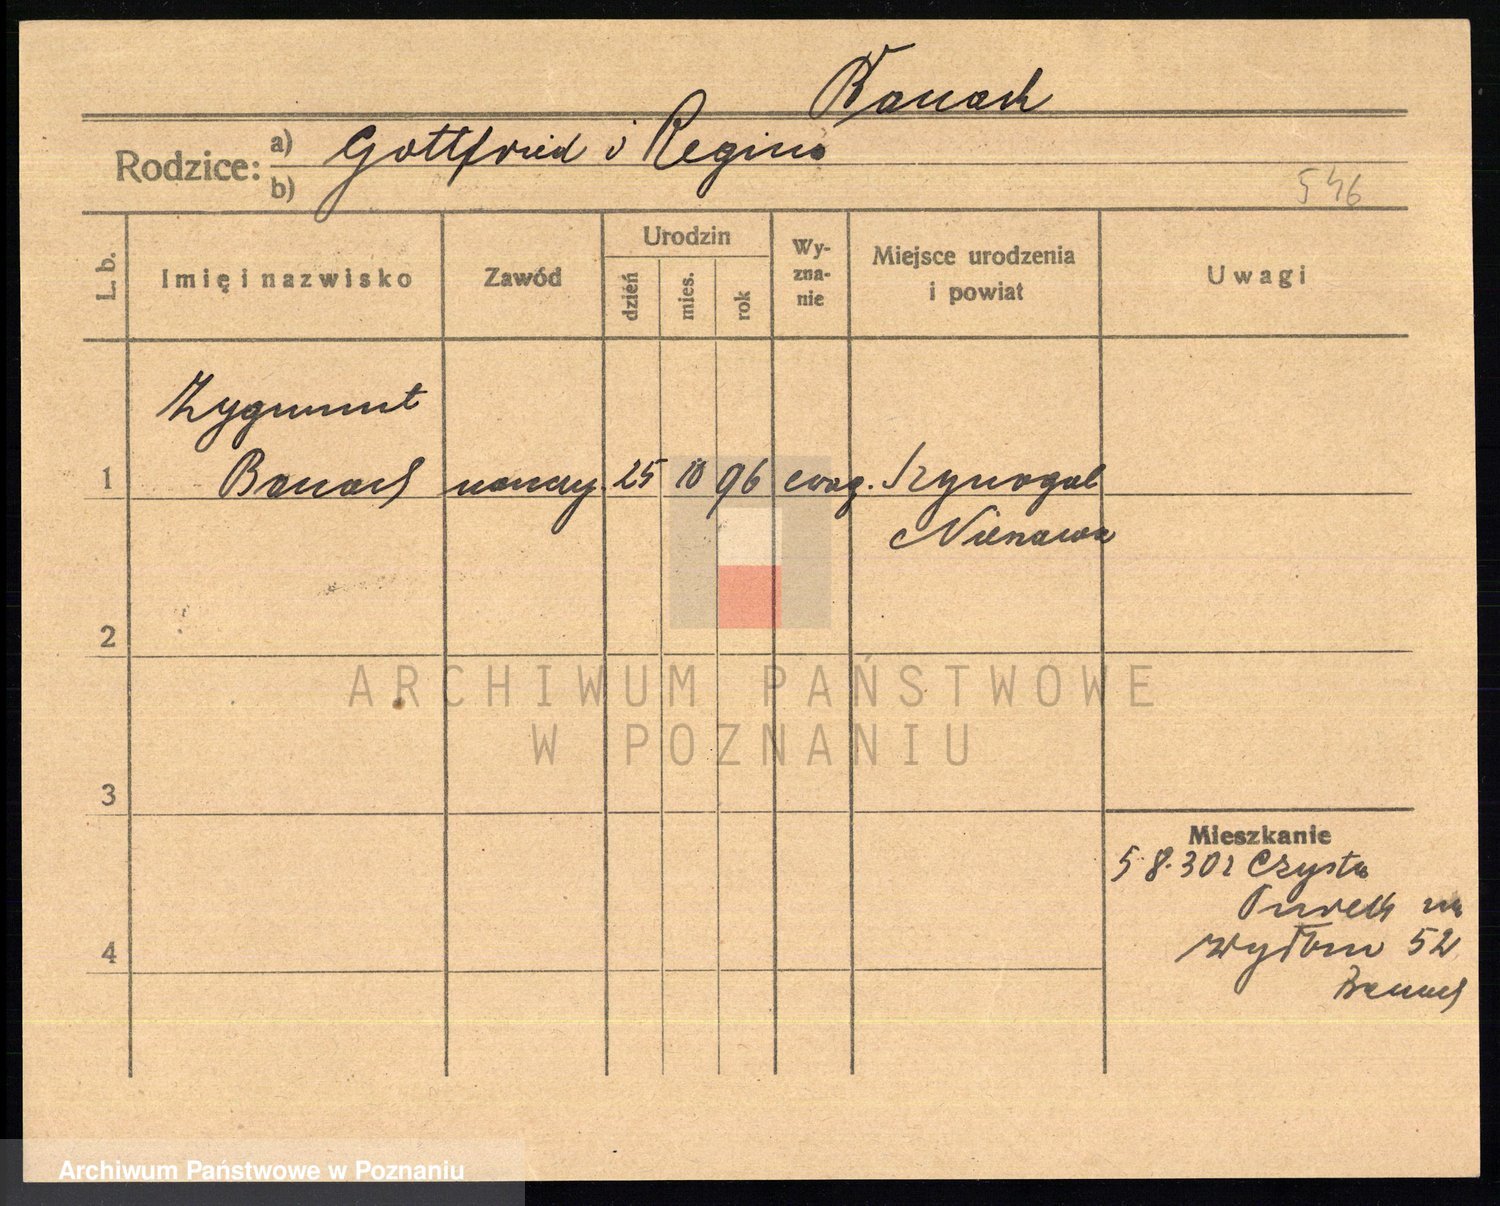 Banach
Rodzice: a) Gottfried i Regina
b)
546
L. b.
Imię i nazwisko
Zawód
Urodzin
dzień
mies.
rok
Wy-
zna-
nie
Miejsce urodzenia
i powiat
Uwagi
Zygmunt
1 Banach 25 10 96 ewag. Szynogal
2
3
4
Mieszkanie
5.8.30 z Czysta
52
Banach
ARCHIWUM PAŃSTWOWE
W POZNANIU
Archiwum Państwowe w Poznaniu